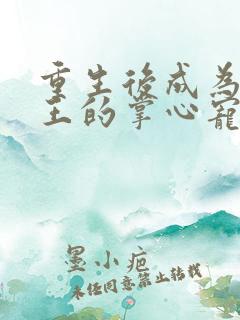 重生後成為
王的掌心寵
墨小疤
未經同意禁止轉載